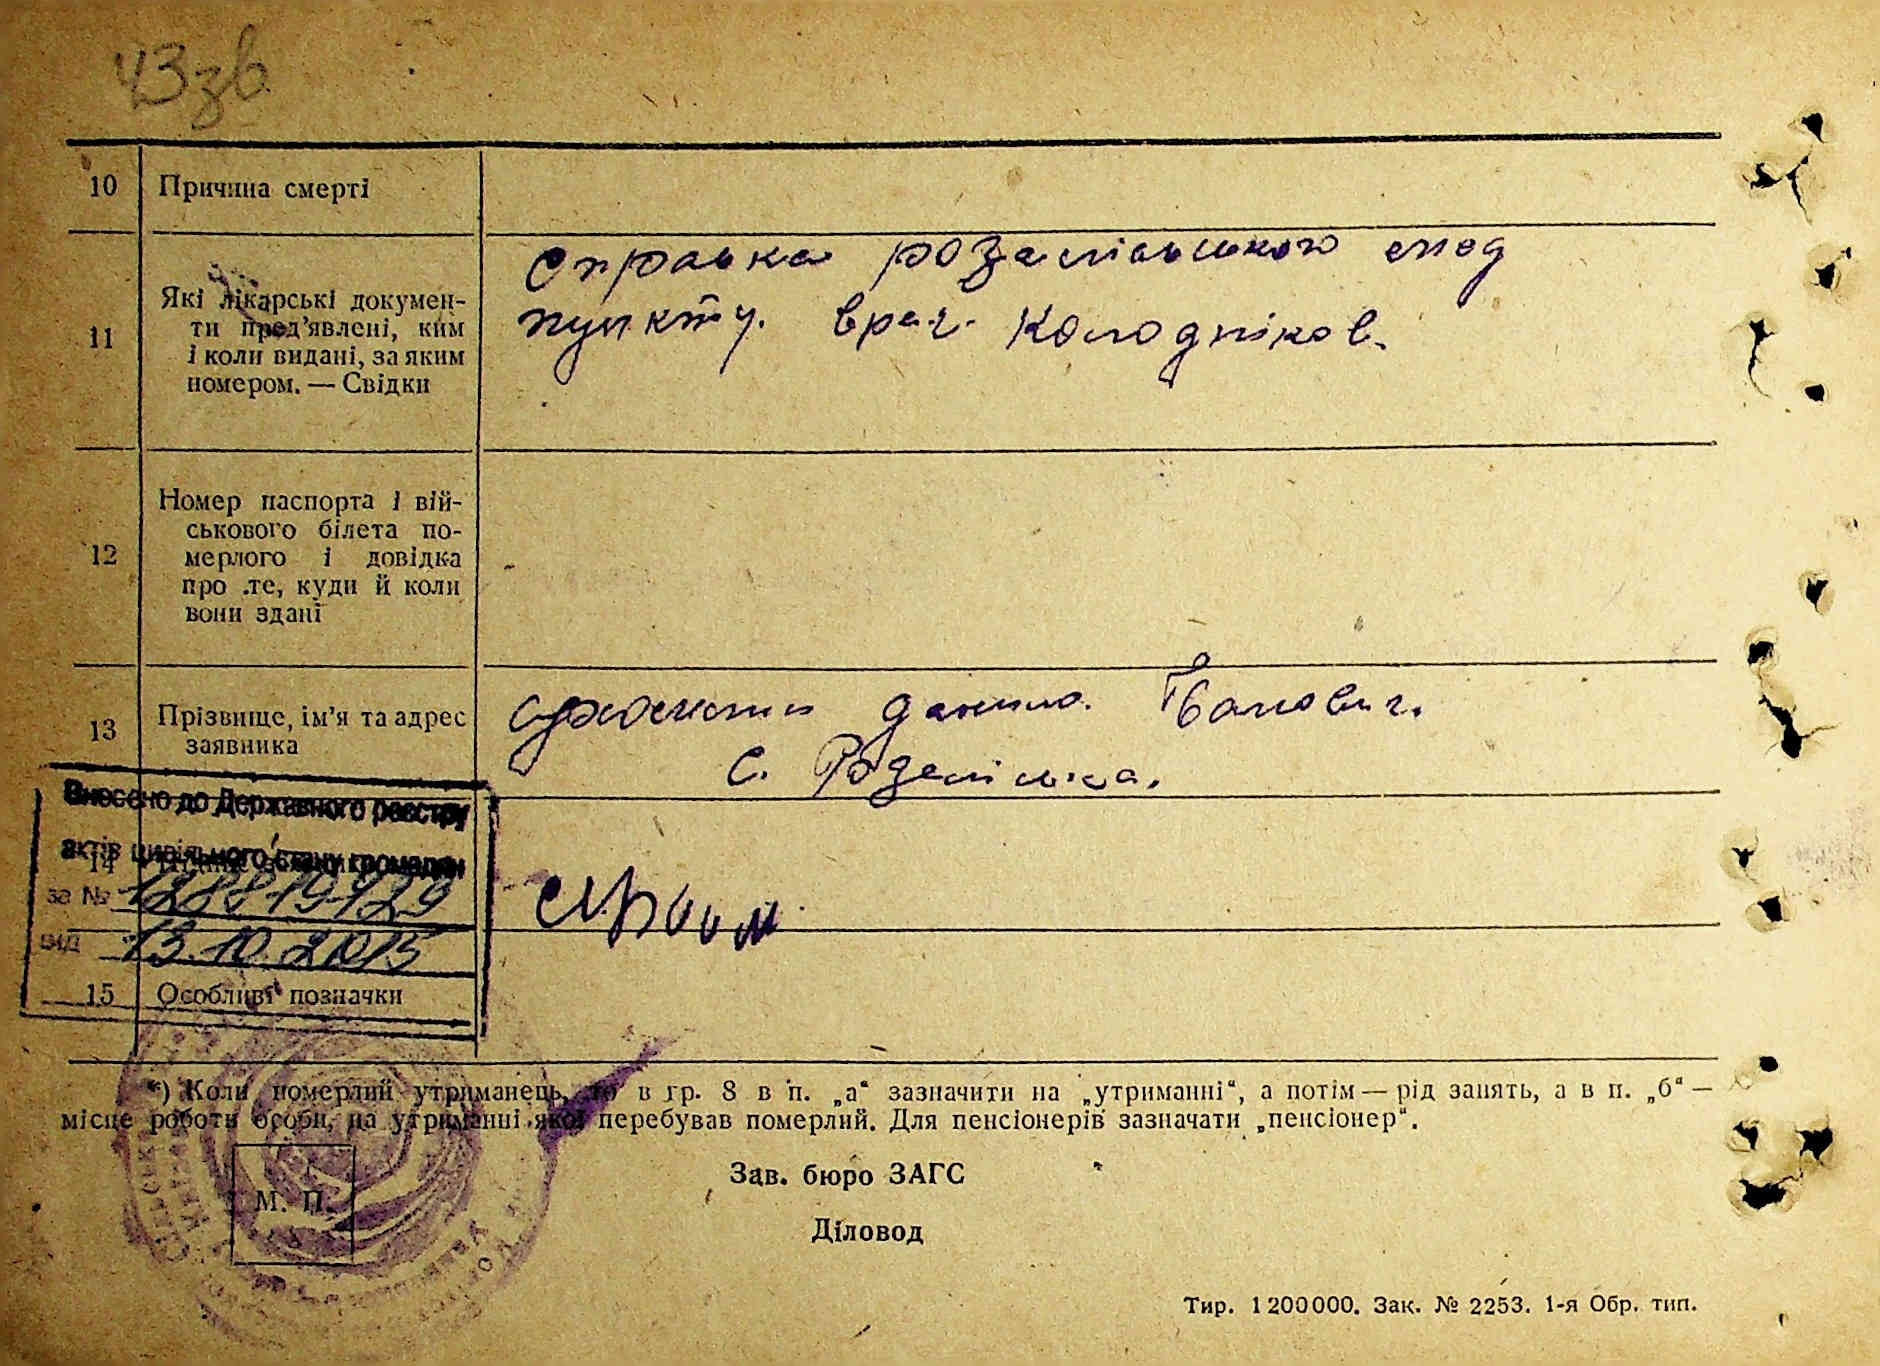 43зв
10 Причина смерті
11 Які лікарські докумен-
ти пред'явлені, ким
і коли видані, за яким
номером. — Свідки
Справка розалівського мед
пункту. врач. Колодніков.
12 Номер паспорта і вій-
ськового білета по-
мерлого і довідка
про те, куди й коли
вони здані
13 Прізвище, ім'я та адрес
заявника
данило. Іванович.
с. Розалівка.
Внесено до Державного реєстру
актів цивільного стану громадян
14
за №
від 13.10.2015
15 Особливі позначки
*) Коли померлий утриманець, то в гр. 8 в п. „а“ зазначити на „утриманні“, а потім — рід занять, а в п. „б“ —
місце роботи особи, на утриманні якої перебував померлий. Для пенсіонерів зазначати „пенсіонер“.
Зав. бюро ЗАГС
М. П.
Діловод
Тир. 1200000. Зак. № 2253. 1-я Обр. тип.